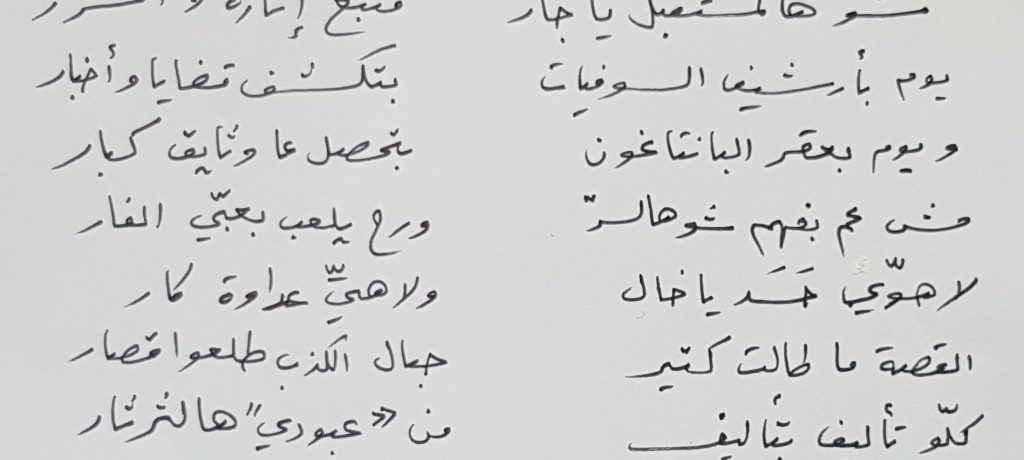 شو هالمستقبل يا جار منبع إثارة
يوم بأرشيف السوفيات بتكشف قضايا وأخبار
ويوم بعقر البانتاغون بتحصل عا وثايق كبار
مش عم بفهم شو هالسرّ ورح يلعب بعبّي الفار
لا هوّي حَسَد يا خال ولا هيِّ عداوة كار
القصة ما طالت كتير حبال الكذب طلعوا قصار
كلّو تأليف بتأليف من «عبودي" هالثرثار